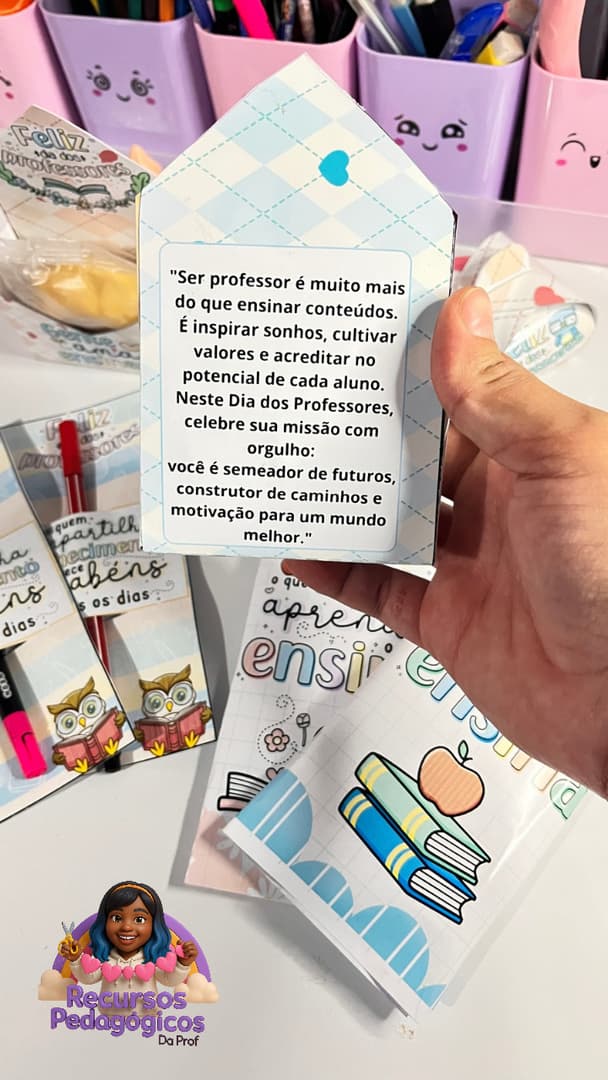 Feliz
dia dos
professores
"Ser professor é muito mais
do que ensinar conteúdos.
É inspirar sonhos, cultivar
valores e acreditar no
potencial de cada aluno.
Neste Dia dos Professores,
celebre sua missão com
orgulho:
você é semeador de futuros,
construtor de caminhos e
motivação para um mundo
melhor."
Feliz
dia dos
professores
quem
abéns
s os dias
dias
o que
ensi
Recursos
Pedagógicos
Da Prof